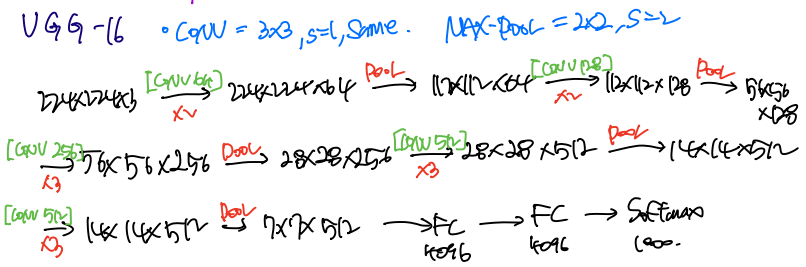 VGG-16 • CONV = 3x3, s=1, Same. MAX-POOL = 2x2, s=2
224x224x3 [CONV 64] x2 → 224x224x64 POOL → 112x112x64 [CONV 128] x2 → 112x112x128 POOL → 56x56x128
[CONV 256] x3 → 56x56x256 POOL → 28x28x256 [CONV 512] x3 → 28x28x512 POOL → 14x14x512
[CONV 512] x3 → 14x14x512 POOL → 7x7x512 → FC 4096 → FC 4096 → Softmax 1000.